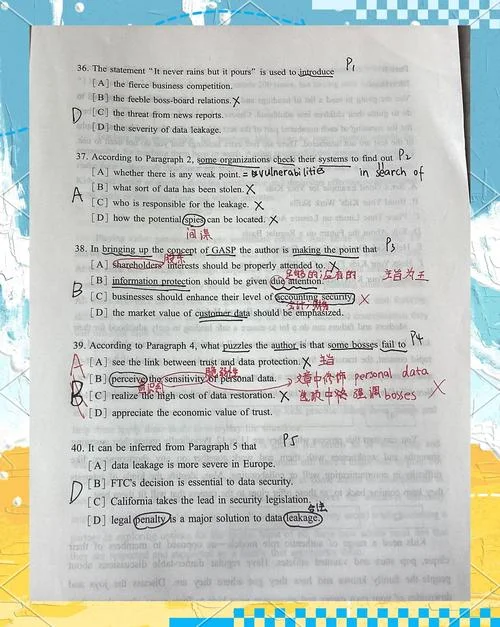 36. The statement "It never rains but it pours" is used to introduce P1
[A] the fierce business competition.
[B] the feeble boss-board relations. X
D [C] the threat from news reports.
[D] the severity of data leakage.
37. According to Paragraph 2, some organizations check their systems to find out P2
[A] whether there is any weak point. = vulnerabilities in search of
[B] what sort of data has been stolen. X
A [C] who is responsible for the leakage. X
[D] how the potential spies can be located. X
间谍
38. In bringing up the concept of GASP the author is making the point that P3
股东
[A] shareholders' interests should be properly attended to. X
B [B] information protection should be given due attention.
[C] businesses should enhance their level of accounting security X
[D] the market value of customer data should be emphasized.
39. According to Paragraph 4, what puzzles the author is that some bosses fail to P4
A [A] see the link between trust and data protection. X
B [B] perceive the sensitivity of personal data. 文章中修饰 personal data
[C] realize the high cost of data restoration. X 强调 bosses X
[D] appreciate the economic value of trust.
40. It can be inferred from Paragraph 5 that P5
[A] data leakage is more severe in Europe.
D [B] FTC's decision is essential to data security.
[C] California takes the lead in security legislation.
[D] legal penalty is a major solution to data leakage.